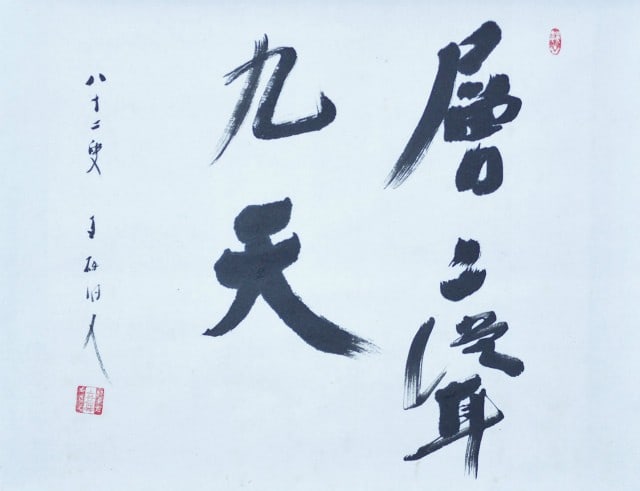 層々聳
九天
八十二叟